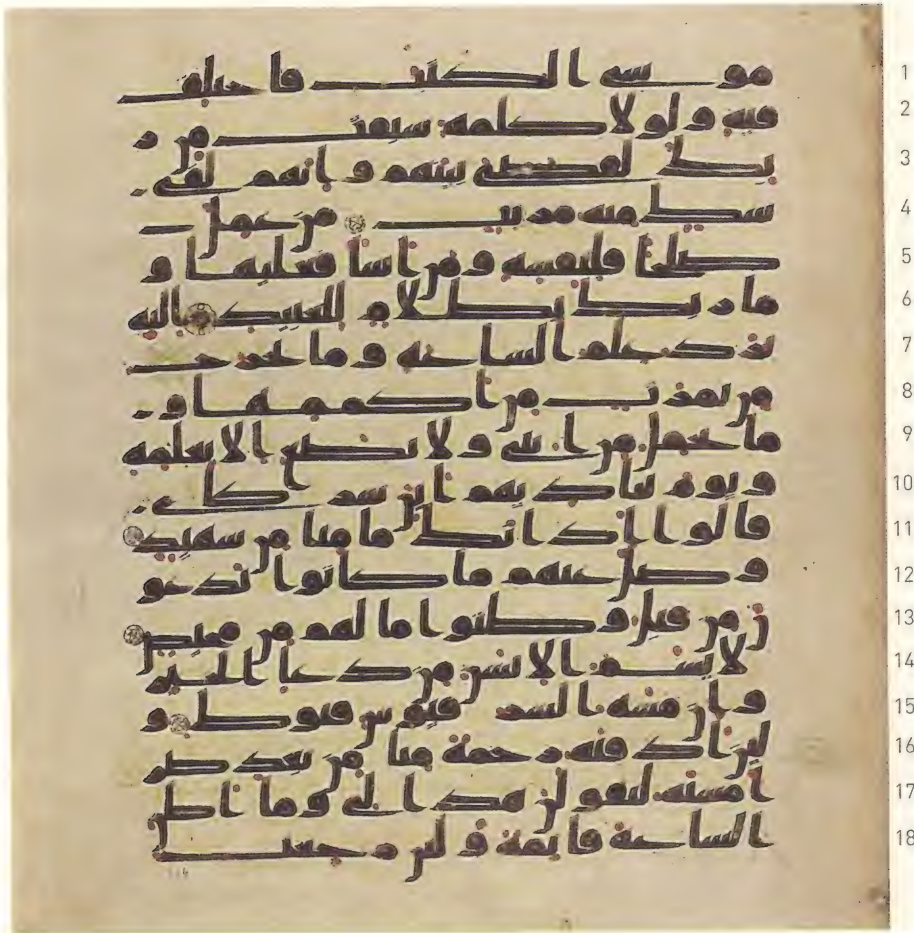 1 موسى الكتب فاختلف
2 فيه ولولا كلمة سبقت من ر
3 بك لقضي بينهم وانهم لفي
4 شك منه مريب من عمل
5 صلحا فلنفسه ومن اسا فعليها و
6 ما ربك بظلام للعبيد اليه
7 يرد علم الساعة وما تخرج
8 من ثمرت من اكممها و
9 ما تحمل من انثى ولا تضع الا بعلمه
10 ويوم يناديهم اين شركاي
11 قالوا اذنك ما منا من شهيد
12 وضل عنهم ما كانوا يدعو
13 ن من قبل وظنوا ما لهم من محيص
14 لا يسم الانسن من دعا الخير
15 وان مسه الشر فيوس قنوط و
16 لئن اذقنه رحمة منا من بعد ضر
17 ا مسته ليقولن هذا لي وما اظن
18 الساعة قائمة ولئن رجعت